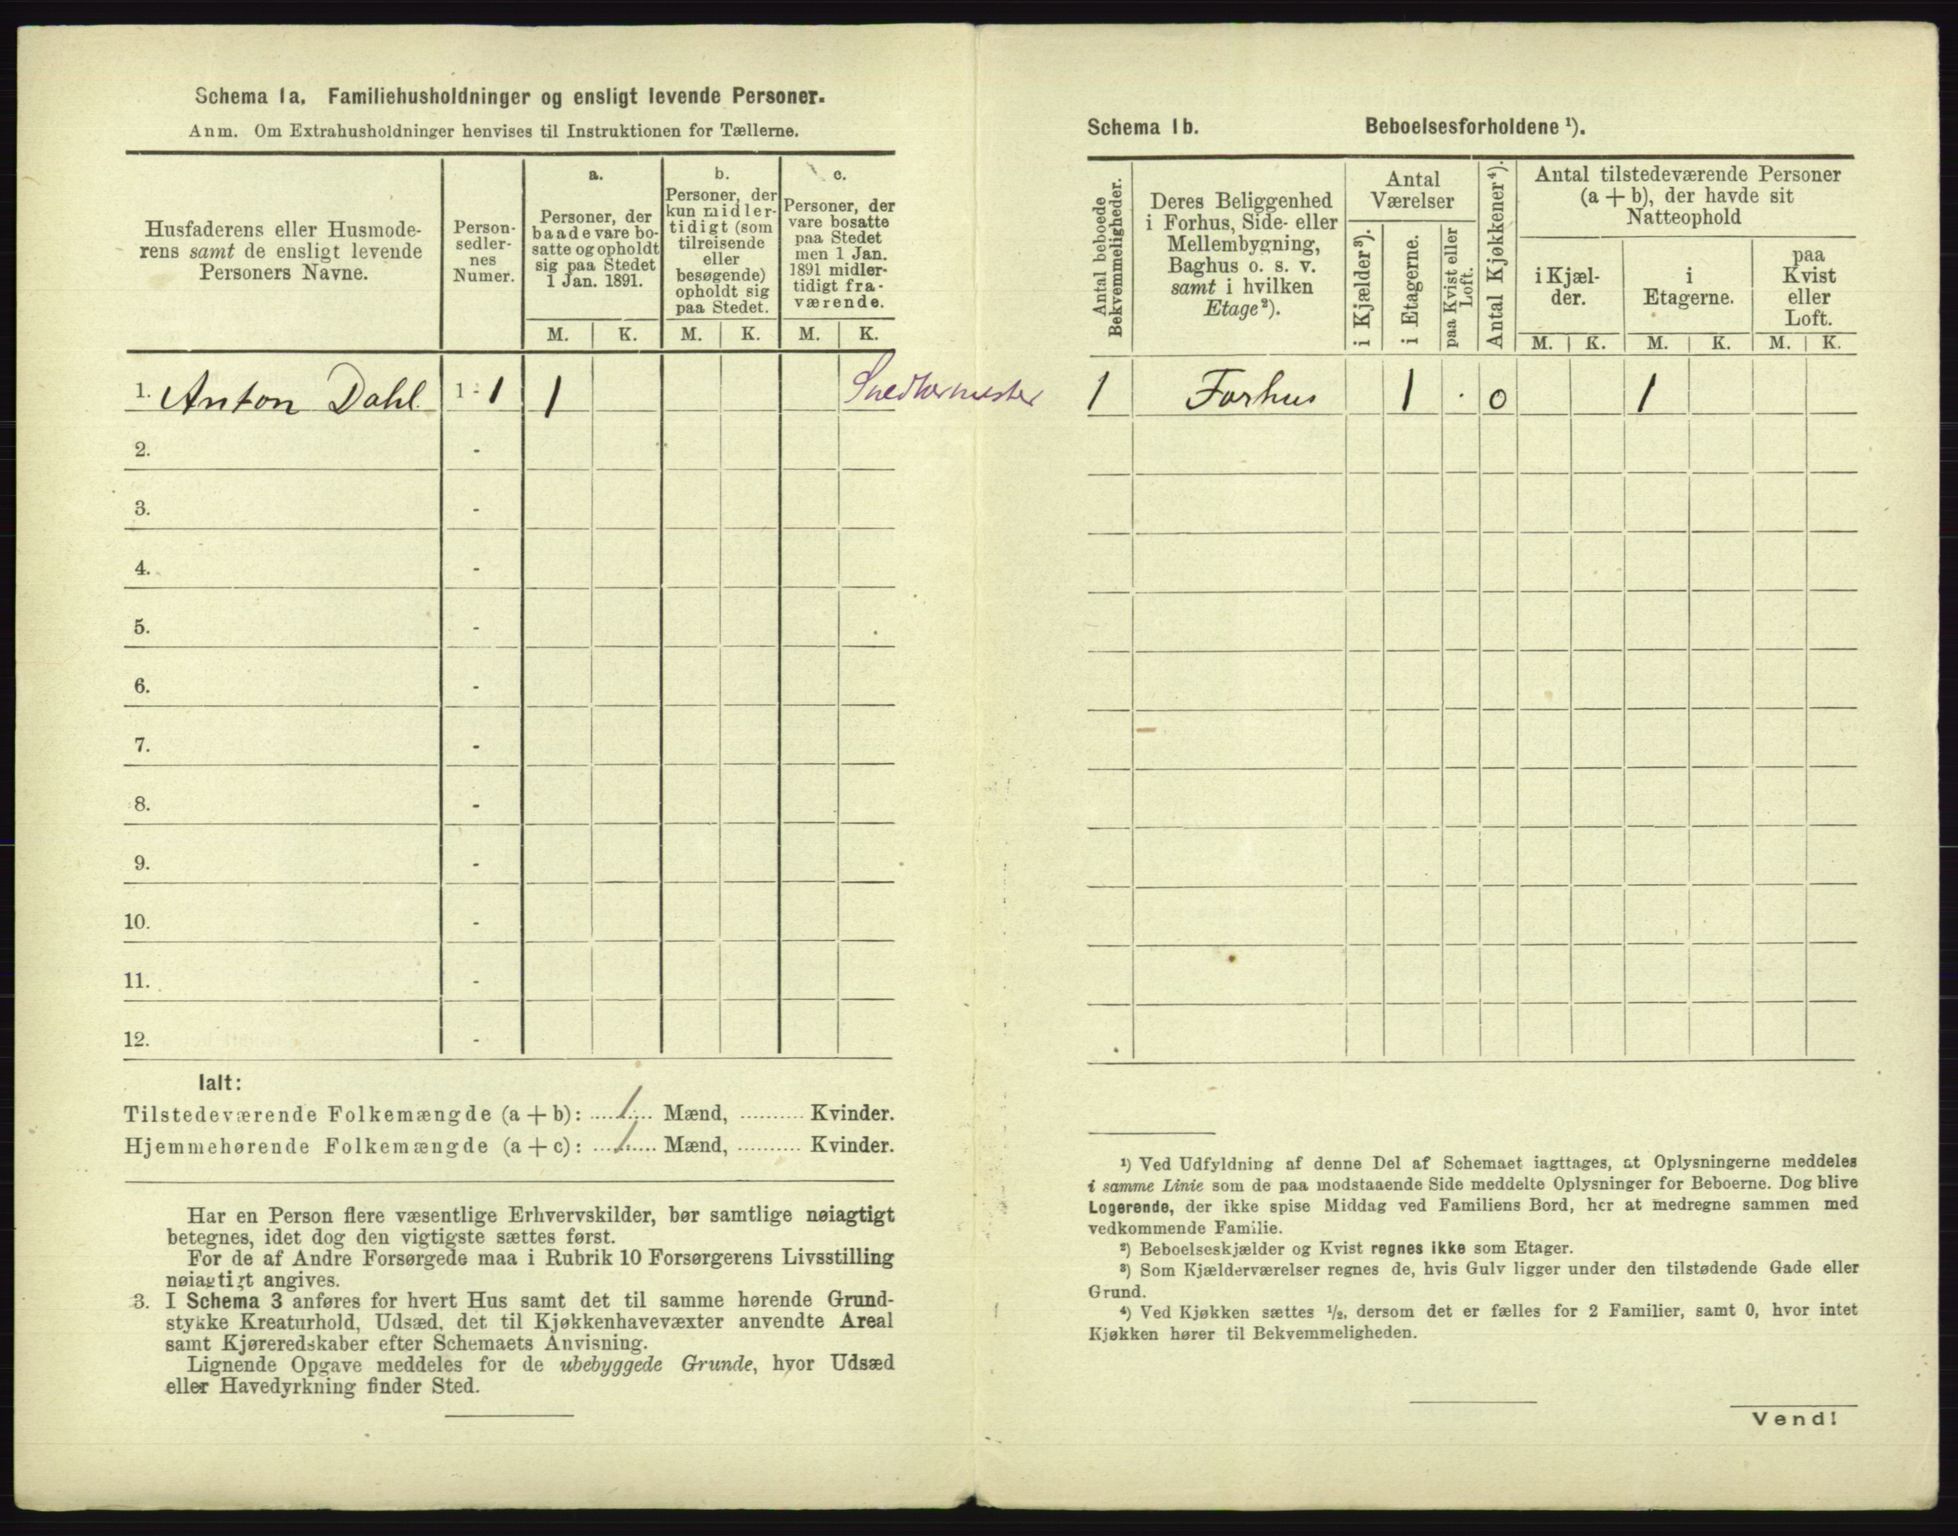 Schema 1a. Familiehusholdninger og ensligt levende Personer.
Anm. Om Extrahusholdninger henvises til Instruktionen for Tællerne.
Husfaderens eller Husmode-
rens samt de ensligt levende
Personers Navne.
Person-
sedler-
nes
Numer.
a.
Personer, der
baade vare bo-
satte og opholdt
sig paa Stedet
1 Jan. 1891.
b.
Personer, der
kun midler-
tidigt (som
tilreisende
eller
besøgende)
opholdt sig
paa Stedet.
c.
Personer, der
vare bosatte
paa Stedet
men 1 Jan.
1891 midler-
tidigt fra-
værende.
M. K. M. K. M. K.
1. Anton Dahl 1 - 1 1 Snedkermester
2. -
3. -
4. -
5. -
6. -
7. -
8. -
9. -
10. -
11. -
12. -
Ialt:
Tilstedeværende Folkemængde (a + b): 1 Mænd, .......... Kvinder.
Hjemmehørende Folkemængde (a + c): 1 Mænd, .......... Kvinder.
Har en Person flere væsentlige Erhvervskilder, bør samtlige nøiagtigt
betegnes, idet dog den vigtigste sættes først.
For de af Andre Forsørgede maa i Rubrik 10 Forsørgerens Livsstilling
nøiagtigt angives.
3. I Schema 3 anføres for hvert Hus samt det til samme hørende Grund-
stykke Kreaturhold, Udsæd, det til Kjøkkenhavevæxter anvendte Areal
samt Kjøreredskaber efter Schemaets Anvisning.
Lignende Opgave meddeles for de ubebyggede Grunde, hvor Udsæd
eller Havedyrkning finder Sted.
Schema 1b. Beboelsesforholdene ¹).
Antal beboede
Bekvemmeligheder.
Deres Beliggenhed
i Forhus, Side- eller
Mellembygning,
Baghus o. s. v.
samt i hvilken
Etage²).
Antal
Værelser
i Kjælder³).
i Etagerne.
paa Kvist eller
Loft.
Antal Kjøkkener⁴).
Antal tilstedeværende Personer
(a + b), der havde sit
Natteophold
i Kjæl-
der.
i
Etagerne.
paa
Kvist
eller
Loft.
M. K. M. K. M. K.
1 Forhus 1 · 0 1
¹) Ved Udfyldning af denne Del af Schemaet iagttages, at Oplysningerne meddeles
i samme Linie som de paa modstaaende Side meddelte Oplysninger for Beboerne. Dog blive
Logerende, der ikke spise Middag ved Familiens Bord, her at medregne sammen med
vedkommende Familie.
²) Beboelseskjælder og Kvist regnes ikke som Etager.
³) Som Kjælderværelser regnes de, hvis Gulv ligger under den tilstødende Gade eller
Grund.
⁴) Ved Kjøkken sættes ½, dersom det er fælles for 2 Familier, samt 0, hvor intet
Kjøkken hører til Bekvemmeligheden.
Vend!